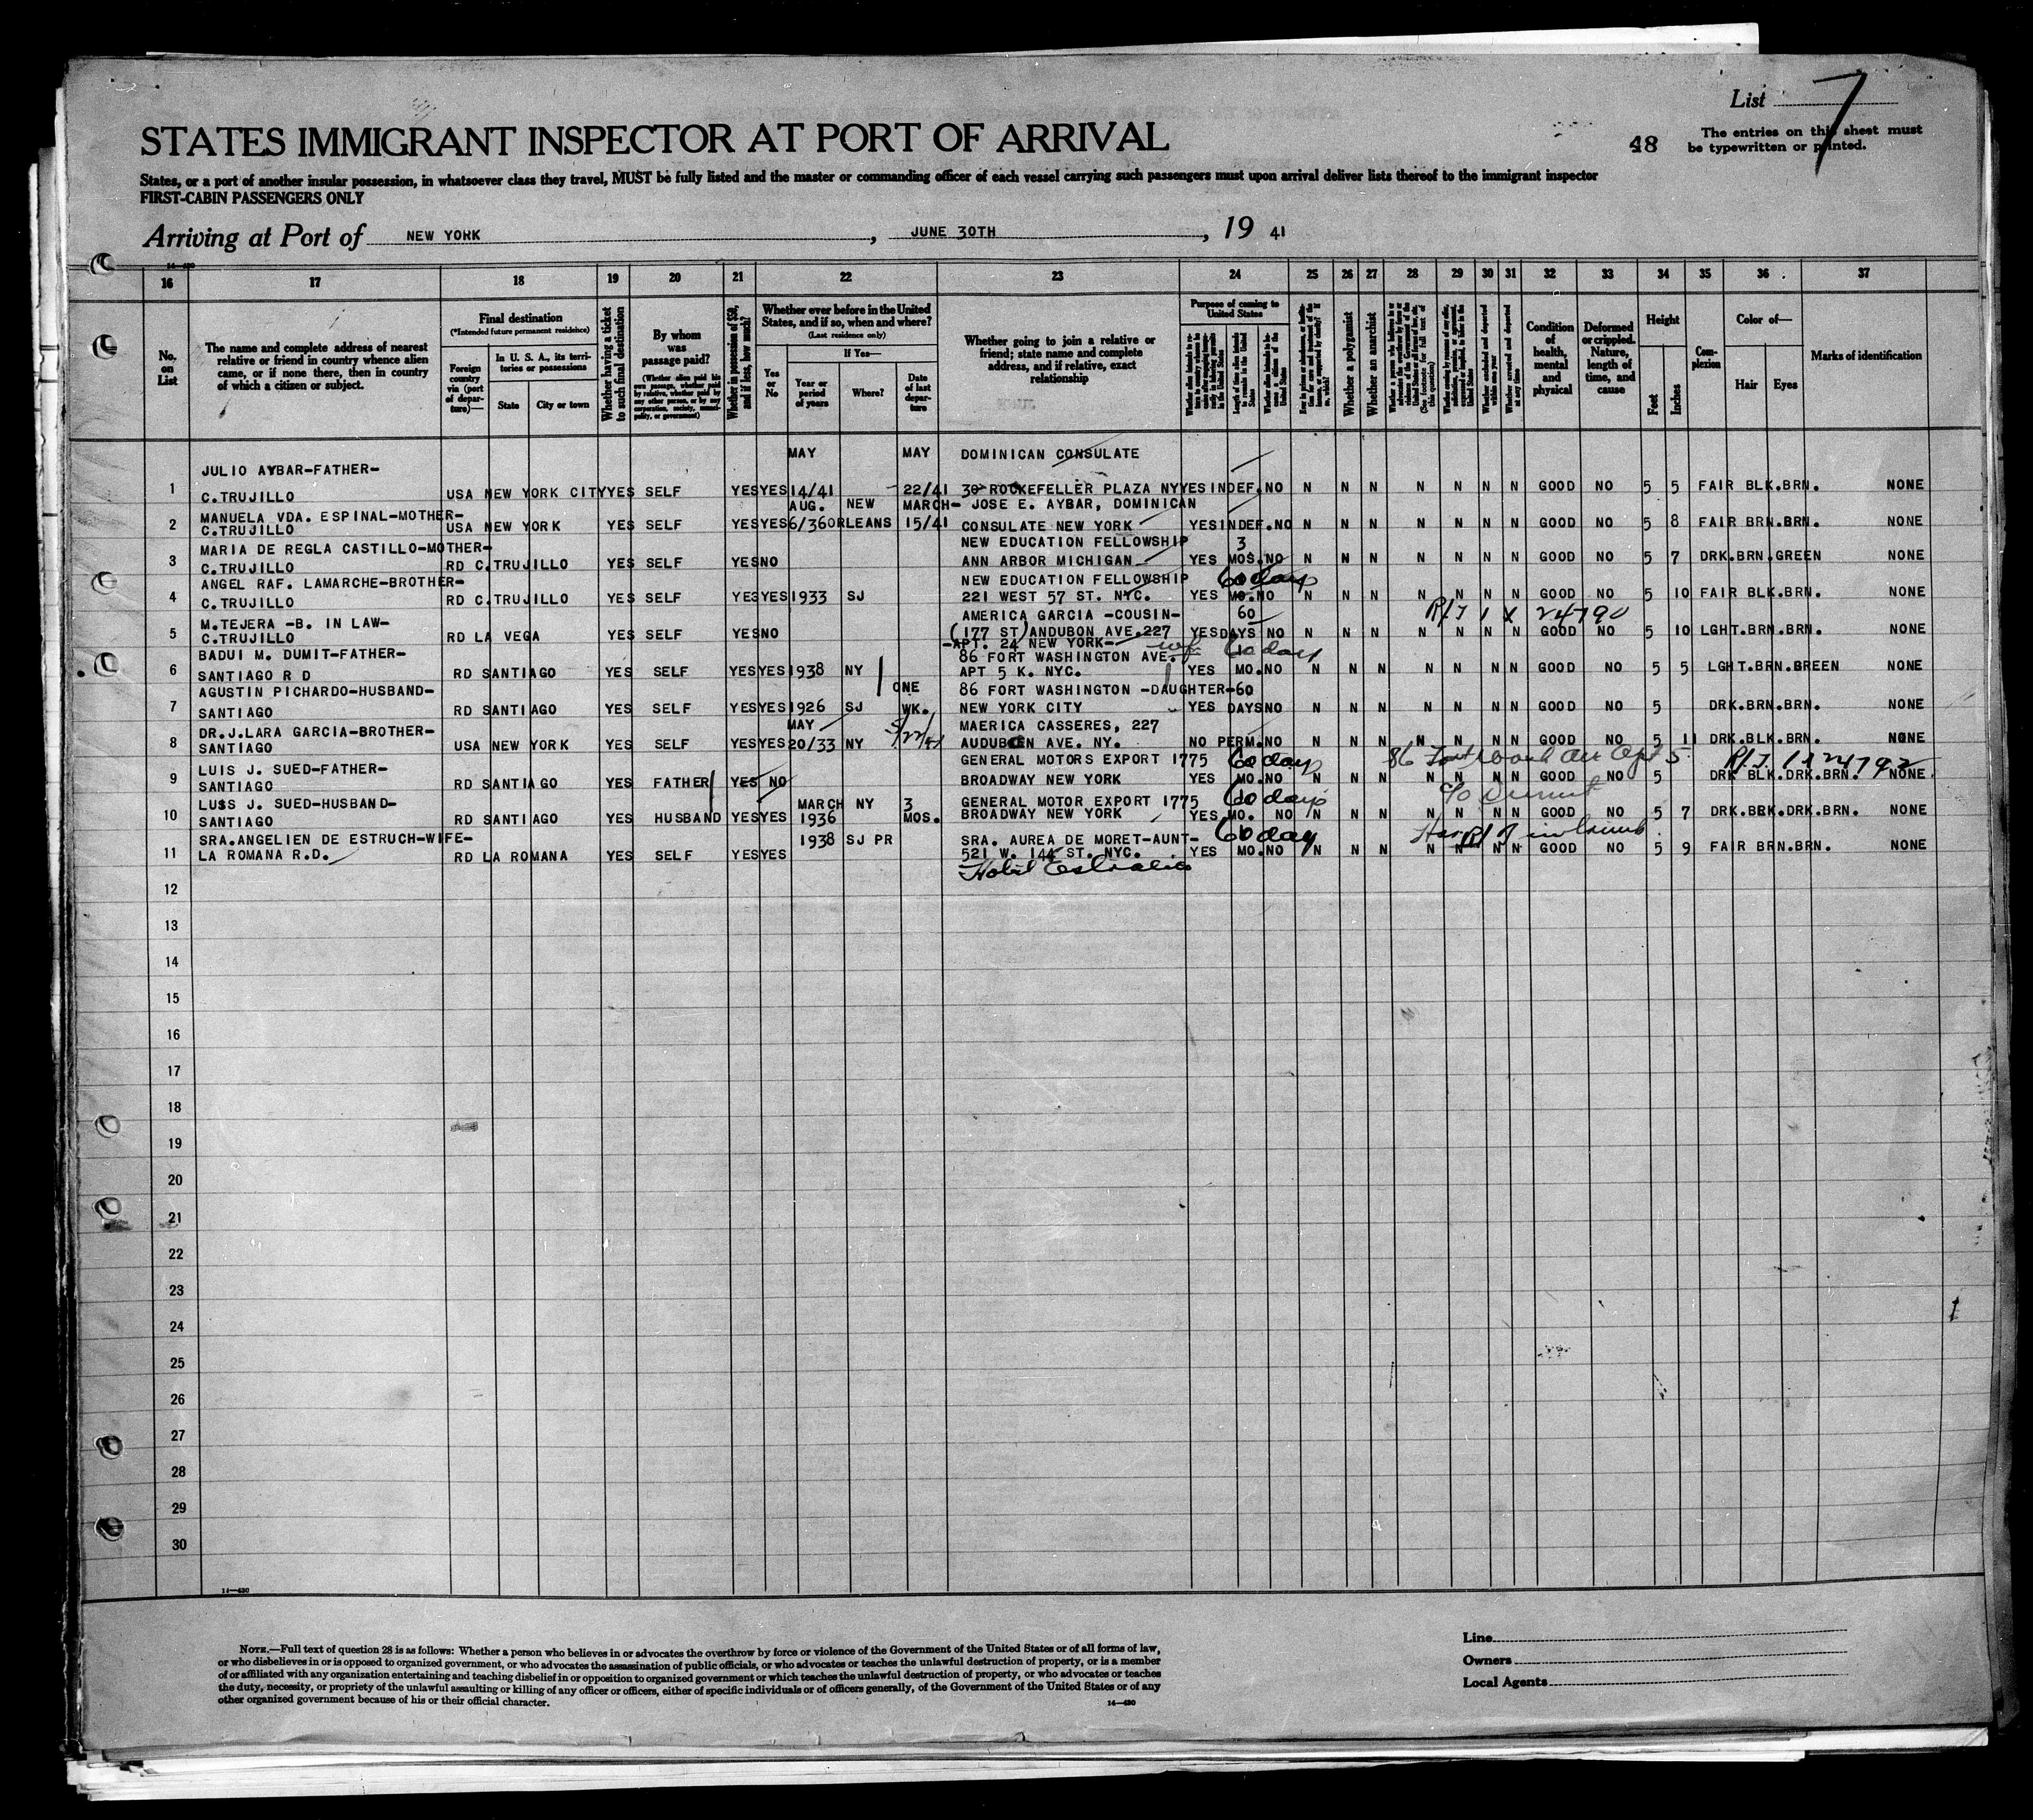 List 7
STATES IMMIGRANT INSPECTOR AT PORT OF ARRIVAL
48
The entries on this sheet must
be typewritten or printed.
States, or a port of another insular possession, in whatsoever class they travel, MUST be fully listed and the master or commanding officer of each vessel carrying such passengers must upon arrival deliver lists thereof to the immigrant inspector
FIRST-CABIN PASSENGERS ONLY
Arriving at Port of NEW YORK, JUNE 30TH, 19 41
14—430
16 17 18 19 20 21 22 23 24 25 26 27 28 29 30 31 32 33 34 35 36 37
No. on List
The name and complete address of nearest relative or friend in country whence alien came, or if none there, then in country of which a citizen or subject.
Final destination
(*Intended future permanent residence)
Foreign country via (port of departure)—
In U. S. A., its territories or possessions
State
City or town
Whether having a ticket to such final destination
By whom was passage paid?
(Whether alien paid his own passage, whether paid by relative, whether paid by any other person, or by any corporation, society, municipality, or government)
Whether in possession of $50, and if less, how much?
Whether ever before in the United States, and if so, when and where?
(Last residence only)
Yes or No
If Yes—
Year or period of years
Where?
Date of last departure
Whether going to join a relative or friend; state name and complete address, and if relative, exact relationship
Purpose of coming to United States
Length of time alien intends to remain in the United States
Whether alien intends to become a citizen of the United States
Whether a polygamist
Whether an anarchist
Whether arrested and deported at any time
Condition of health, mental and physical
Deformed or crippled. Nature, length of time, and cause
Height
Feet
Inches
Complexion
Color of—
Hair
Eyes
Marks of identification
MAY MAY DOMINICAN CONSULATE
JULIO AYBAR-FATHER-
1 C.TRUJILLO USA NEW YORK CITY YES SELF YES YES 14/41 22/41 30 ROCKEFELLER PLAZA NY YES INDEF. NO N N N N N N N GOOD NO 5 5 FAIR BLK. BRN. NONE
AUG. NEW MARCH- JOSE E. AYBAR, DOMINICAN
MANUELA VDA. ESPINAL-MOTHER-
2 C.TRUJILLO USA NEW YORK YES SELF YES YES 6/36 ORLEANS 15/41 CONSULATE NEW YORK YES INDEF. NO N N N N N N N GOOD NO 5 8 FAIR BRN. BRN. NONE
MARIA DE REGLA CASTILLO-MOTHER- NEW EDUCATION FELLOWSHIP 3
3 C.TRUJILLO RD C.TRUJILLO YES SELF YES NO ANN ARBOR MICHIGAN YES MOS. NO N N N N N N N GOOD NO 5 7 DRK. BRN. GREEN NONE
ANGEL RAF. LAMARCHE-BROTHER- NEW EDUCATION FELLOWSHIP 60 days
4 C.TRUJILLO RD C.TRUJILLO YES SELF YES YES 1933 SJ 221 WEST 57 ST. NYC. YES MO. NO N N N N N N N GOOD NO 5 10 FAIR BLK. BRN. NONE
M.TEJERA -B. IN LAW- AMERICA GARCIA -COUSIN- 60 24790
5 C.TRUJILLO RD LA VEGA YES SELF YES NO (177 ST) ANDUBON AVE. 227 YES DAYS NO N N N N N N N GOOD NO 5 10 LGHT. BRN. BRN. NONE
-APT. 24 NEW YORK-
BADUI M. DUMIT-FATHER- 86 FORT WASHINGTON AVE. 60 days
6 SANTIAGO R D RD SANTIAGO YES SELF YES YES 1938 NY APT 5 K. NYC. YES MO. NO N N N N N N N GOOD NO 5 5 LGHT. BRN. BREEN NONE
AGUSTIN PICHARDO-HUSBAND- ONE 86 FORT WASHINGTON -DAUGHTER- 60
7 SANTIAGO RD SANTIAGO YES SELF YES YES 1926 SJ WK. NEW YORK CITY YES DAYS NO N N N N N N N GOOD NO 5 DRK. BRN. BRN. NONE
DR.J.LARA GARCIA-BROTHER- MAY 5/22/41 MAERICA CASSERES, 227
8 SANTIAGO USA NEW YORK YES SELF YES YES 20/33 NY AUDUBON AVE. NY. NO PERM. NO N N N N N N N GOOD NO 5 11 DRK. BLK. BRN. NONE
LUIS J. SUED-FATHER- GENERAL MOTORS EXPORT 1775 60 days 86 Fort Wash Ave Apt 5 24792
9 SANTIAGO RD SANTIAGO YES FATHER YES NO BROADWAY NEW YORK YES MO. NO N N N N N N N GOOD NO 5 DRK BLK. DRK. BRN. NONE
c/o Dumit
LUSS J. SUED-HUSBAND- MARCH NY 3 GENERAL MOTOR EXPORT 1775 60 days
10 SANTIAGO RD SANTIAGO YES HUSBAND YES YES 1936 MOS. BROADWAY NEW YORK YES MO. NO N N N N N N N GOOD NO 5 7 DRK. BRK. DRK. BRN. NONE
SRA.ANGELIEN DE ESTRUCH-WIFE- 1938 SJ PR SRA. AUREA DE MORET-AUNT- 60 day
11 LA ROMANA R.D. RD LA ROMANA YES SELF YES YES 521 W. 144 ST. NYC. YES MO. NO N N N N N N N GOOD NO 5 9 FAIR BRN. BRN. NONE
Hotel
12
13
14
15
16
17
18
19
20
21
22
23
24
25
26
27
28
29
30
14—430
NOTE.—Full text of question 28 is as follows: Whether a person who believes in or advocates the overthrow by force or violence of the Government of the United States or of all forms of law,
or who disbelieves in or is opposed to organized government, or who advocates the assassination of public officials, or who advocates or teaches the unlawful destruction of property, or is a member
of or affiliated with any organization entertaining and teaching disbelief in or opposition to organized government or which teaches the unlawful destruction of property, or who advocates or teaches
the duty, necessity, or propriety of the unlawful assaulting or killing of any officer or officers, either of specific individuals or of officers generally, of the Government of the United States or of any
other organized government because of his or their official character.
14—430
Line
Owners
Local Agents